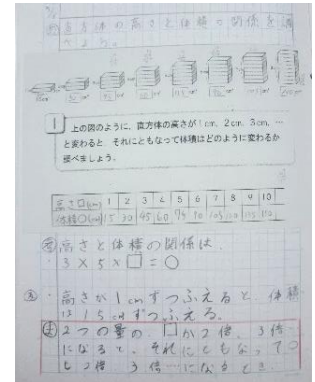 直方体の高さと体積の関係を調
べよう。
1 上の図のように、直方体の高さが1cm、2cm、3cm、…
と変わると、それにともなって体積はどのように変わるか
調べましょう。
高さ□(cm) 1 2 3 4 5 6 7 8 9 10
体積○(cm³) 15 30 45 60 75 90 105
高さと体積の関係は
3×5×□=○
高さが1cmずつふえると、体積
は15cm³ずつふえる。
2つの量の、□が2倍、3倍
になると、それにともなって○
も2倍、3倍…になるとき